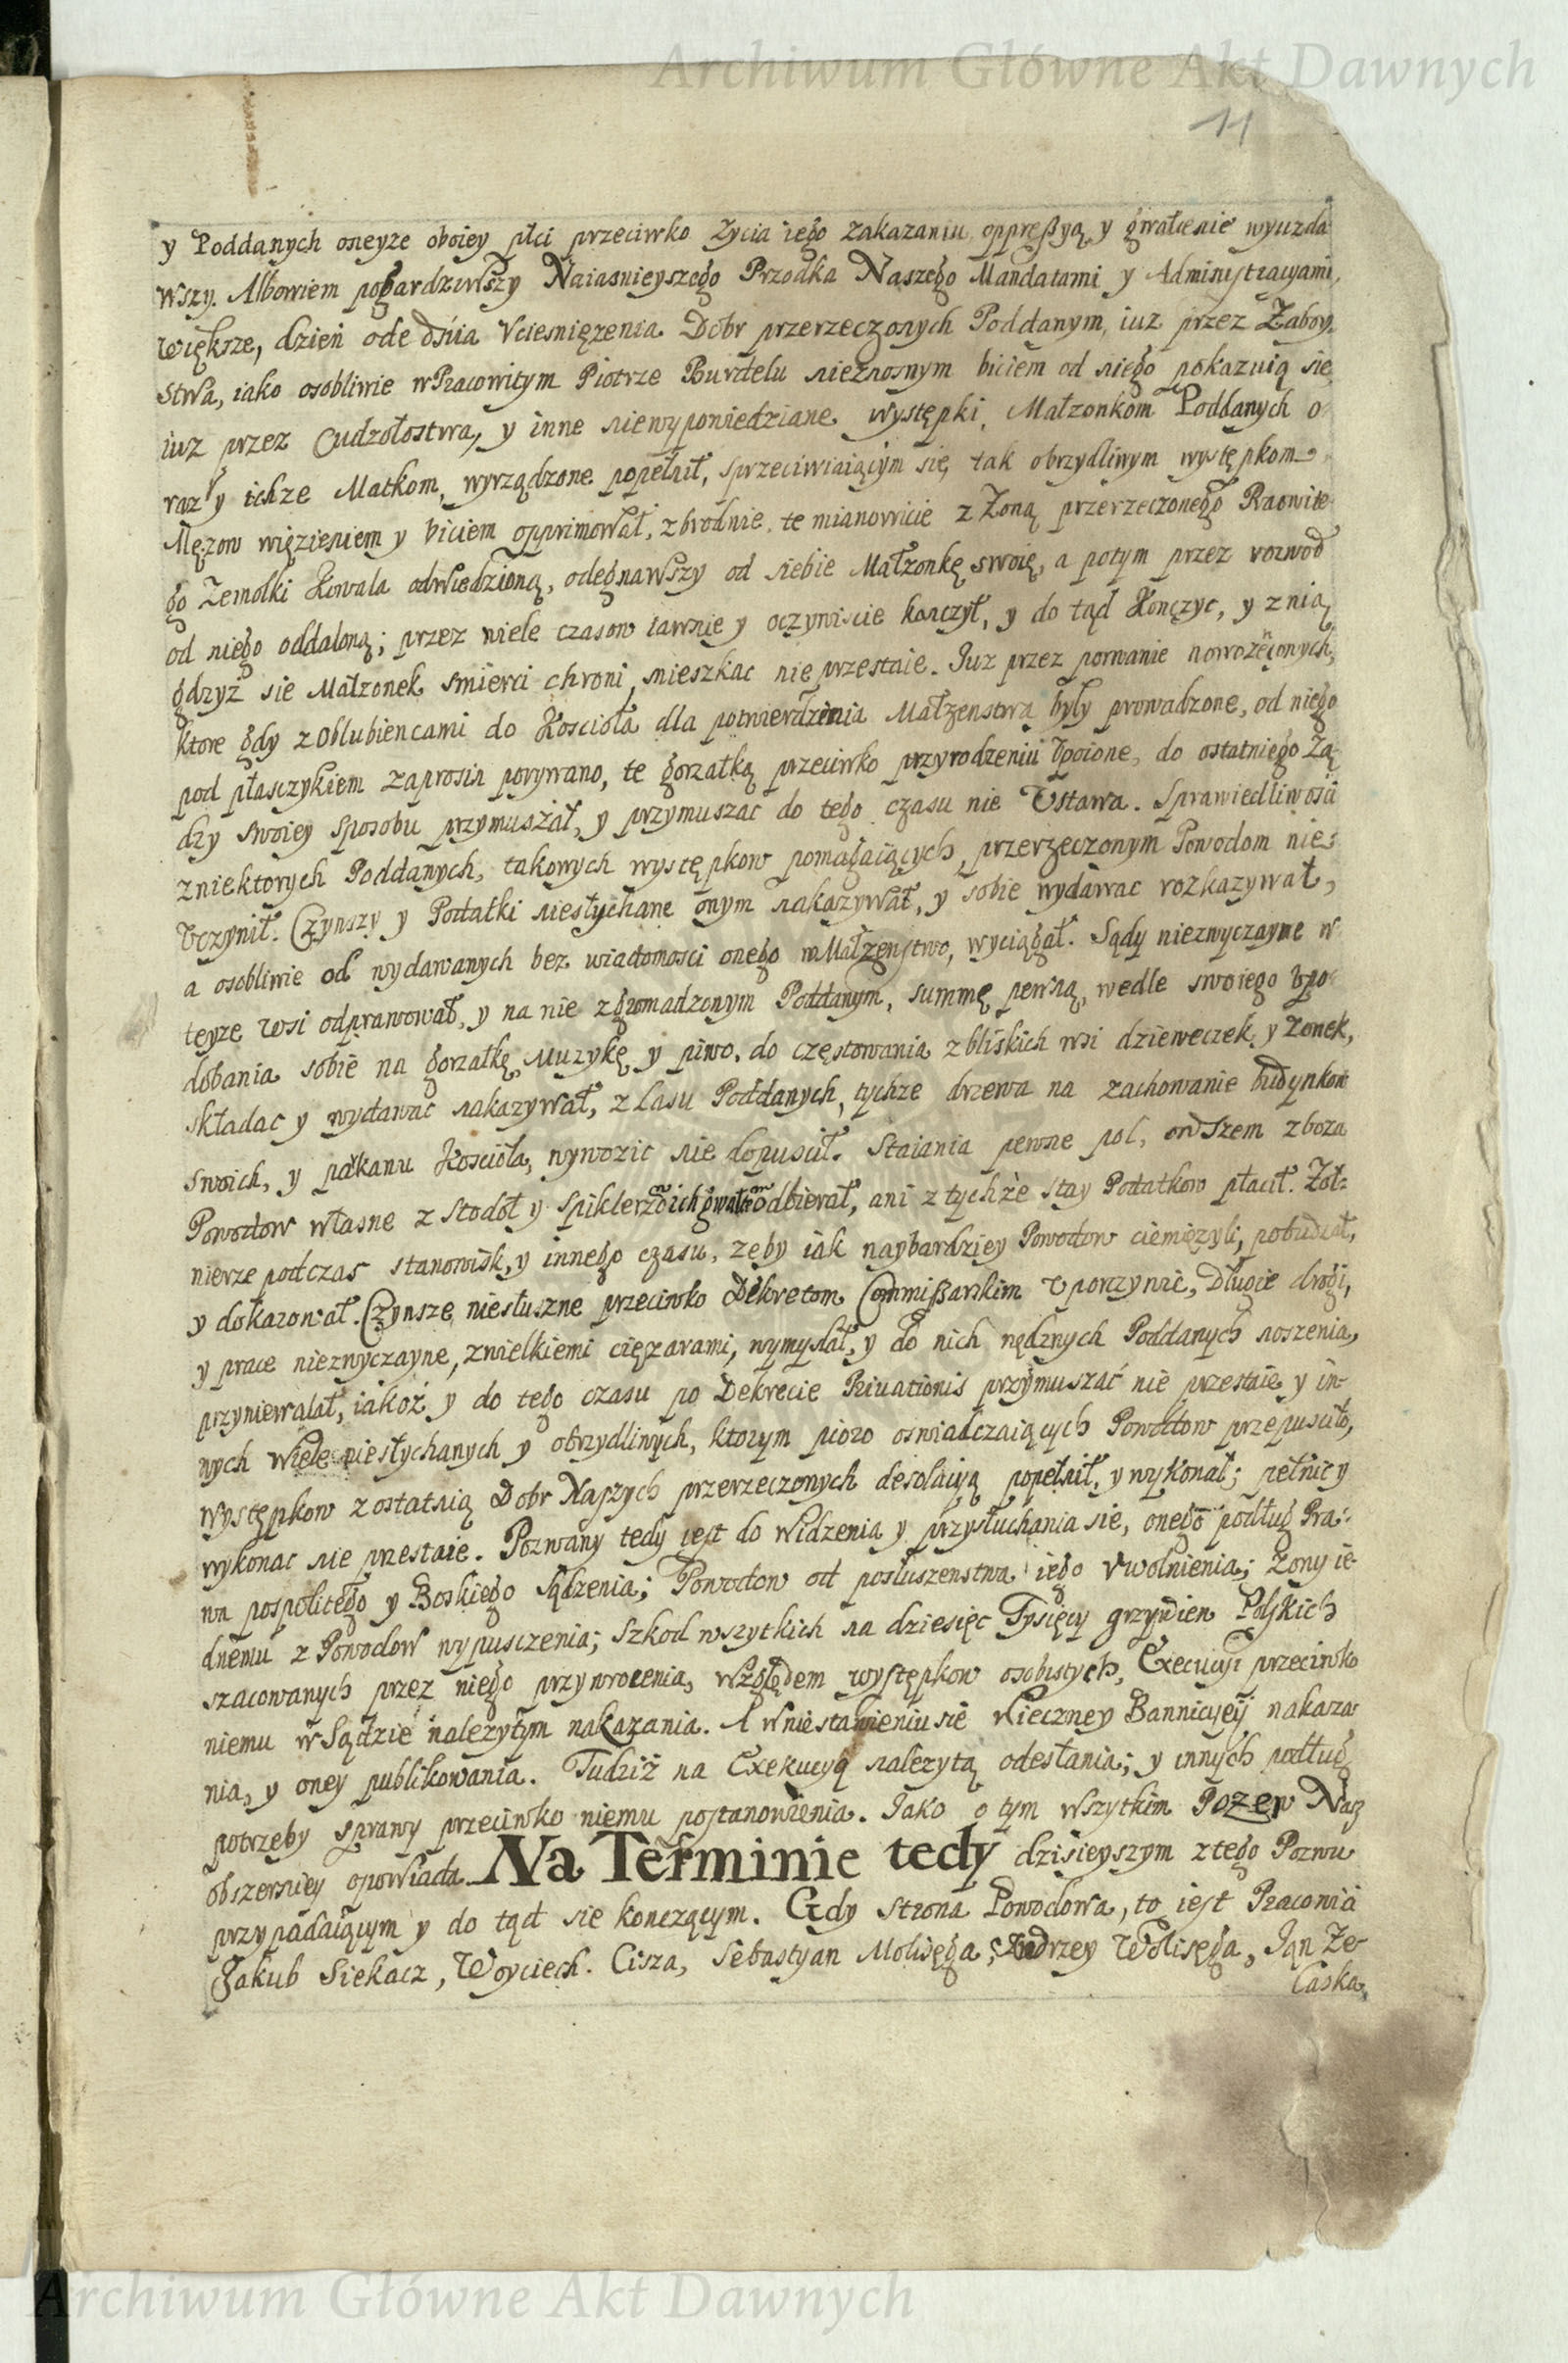 Archiwum Główne Akt Dawnych
11
y Poddanych oneyze oboiey płci przeciwko Zycia iego zakazaniu oppreßyą y gwałcenie wyuzda
wszy. Albowiem pogardziwszy Naiasnieyszego Przodka Naszego Mandatami y Administracyami,
większe, dzień ode dnia Vciesnięzenia Dobr przerzeczonych Poddanym, iuz przez Zaboy
stwa, iako osobliwie w Pracowitym Piotrze Burdelu nieznosnym biciem od niego pokazuią się
iuz przez Cudzołostwa, y inne niewypowiedziane występki, Małzonkom Poddanych o
raz y ichze Matkom, wyrządzone popełnił, sprzeciwiaiącym się tak obrzydliwym występkom
Męzow więzieniem y biciem opprimował, zbrodnie te mianowicie z Zoną przerzeczonego Pracowite
go Zemołki Kowala odwiedzioną, odegnawszy od siebie Małzonkę swoię, a potym przez rozwod
od niego oddaloną; przez wiele czasow iawnie y oczywiscie konczył, y do tąd Konczyc, y z nią
gdzyż sie Małzonek smierci chroni, mieszkac nie przestaie. Iuz przez porwanie nowozęconych,
ktore gdy z Oblubiencami do Koscioła dla potwierdzenia Małzenstwa były prowadzone, od niego
pod płasczykiem zaprosin porywano, te gorzałką przeciwko przyrodzeniu Vpoione, do ostatniego Zą
dzy swoiey sposobu przymuszał, y przymuszac do tego czasu nie Vstawa. Sprawiedliwosci
z niektorych Poddanych, takowych występkow pomagaiących, przerzeczonym Powodom nie
Vczynił. Czynszy y Podatki niesłychane onym nakazywał, y sobie wydawac rozkazywał,
a osobliwie od wydawanych bez wiadomosci onego w Małzenstwo, wyciągał. Sądy niezwyczayne w
teyze wsi odprawował, y na nie zgromadzonym Poddanym, summę pewną, wedle swoiego Vpo
dobania sobie na gorzałkę, Muzykę y piwo, do częstowania z bliskich wsi dzieweczek y Zonek,
składac y wydawac nakazywał, z Lasu Poddanych, tychze drzewa na zachowanie budynkow
swoich, y parkanu Koscioła, wywozic nie dopuscił. Staiania pewne pol, owszem zboza
Powodow własne z stodoł y spiklerzow ich gwałtem odbierał, ani z tychże stay Podatkow płacił. Zoł:
nierze podczas stanowisk, y innego czasu, zęby iak naybardziey Powodow ciemięzyli, pobudzał,
y dokazował. Czynsze niesłuszne przeciwko Dekretom Commißarskim Vporczywie, Długie drogi,
y prace niezwyczayne, z wielkiemi cięzarami, wymyslał, y do nich nędznych Poddanych noszenia,
przyniewalał, iakoż y do tego czasu po Dekrecie Priuationis przymuszać nie przestaie y in
nych wiele niesłychanych y obrzydliwych, ktorym pioro oswiadczaiących Powodow przepusciło,
występkow z ostatnią Dobr Naszych przerzeczonych desolacyą popełnił, y wykonał; pełnic y
wykonac nie przestaie. Pozwany tedy iest do widzenia y przysłuchania sie, onego podług Pra:
wa pospolitego y Boskiego Sądzenia; Powodow od posłuszenstwa iego Vwolnienia; Zony ie
dnemu z Powodow wypusczenia; Szkod wszytkich na dziesięc Tysięcy grzywien Polskich
szacowanych przez niego przywrocenia, względem występkow osobistych, Execucyi przeciwko
niemu w Sądzie nalezytym nakazania. A w niestawieniu sie Wieczney Bannicyey nakaza
nia, y oney publikowania. Tudziż na Exekucyą nalezytą odesłania; y innych podług
potrzeby sprawy przeciwko niemu postanowienia. Iako o tym wszytkim Pozew Nasz
obszerniey opowiada. Na Terminie tedy dzisieyszym z tego Pozwu
przypadaiącym y do tąd sie konczącym. Gdy Strona Powodowa, to iest Pracowici
Jakub Siekacz, Woyciech Cisza, Sebastyan Molisęga, Andrzey Wolisęga, Ian Ze-
Caska,
Archiwum Główne Akt Dawnych